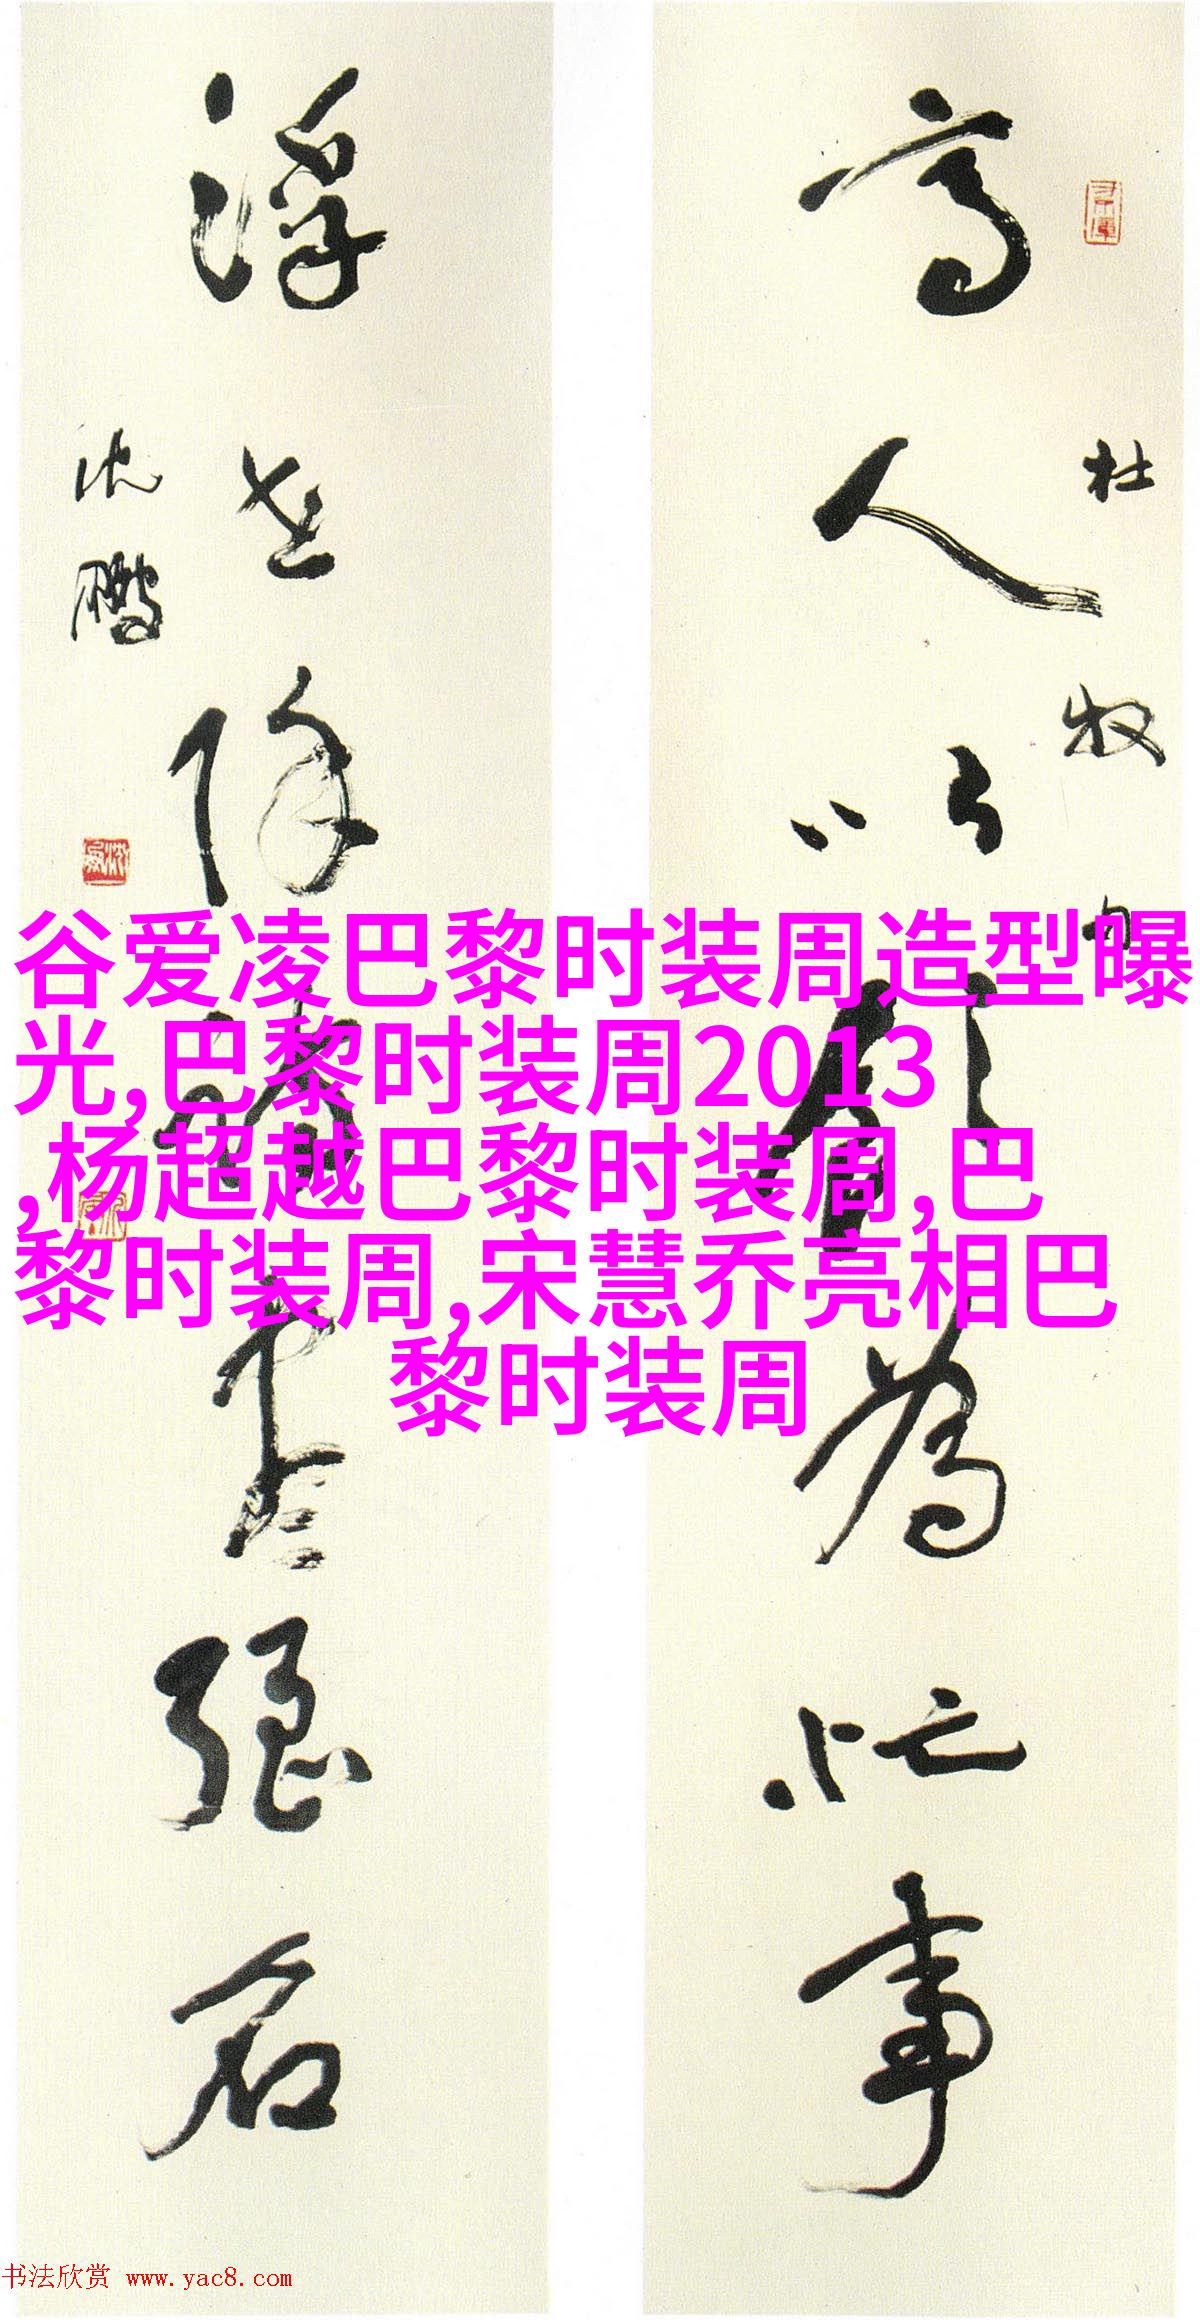 高人以飲為忙事
杜牧句
浮世除詩盡强名
沈鵬
谷爱凌巴黎时装周造型曝
光,巴黎时装周2013
,杨超越巴黎时装周,巴
黎时装周,宋慧乔亮相巴
黎时装周
书法欣赏 www.yac8.com